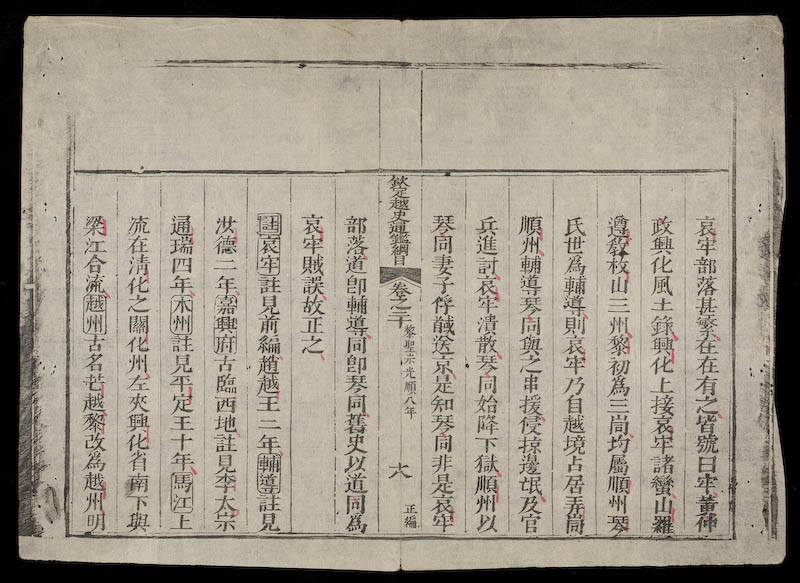 哀牢部落甚繁在在有之皆號曰牢黃仲
政興化風土錄興化上接哀牢諸蠻山羅
遵教枚山三州黎初為三峝均屬順州琴
氏世為輔導則哀牢乃自越境占居弄筒
順州輔導琴同與之串援侵掠邊氓及官
兵進討哀牢潰散琴同始降下獄順州以
琴同妻子俘馘送京是知琴同非是哀牢
欽定越史通鑑綱目
卷之二十
黎聖宗光順八年
十八
正編
部落道卽輔導同卽琴同舊史以道同為
哀牢賊誤故正之
註哀牢註見前編趙越王二年輔導註見
洪德二年嘉興府古臨西地註見李太宗
通瑞四年木州註見平定王十年馬江上
流在清化之關化州左夾興化省南下與
梁江合流越州古名芒越黎改為越州明